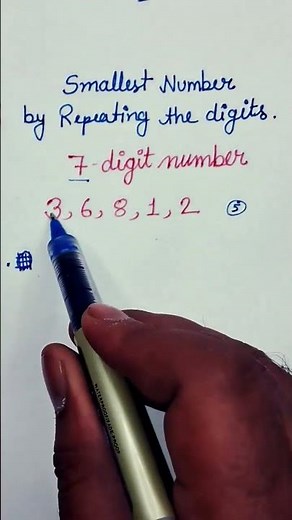 Smallest Number
by Repeating the digits.
7-digit number
3, 6, 8, 1, 2 5